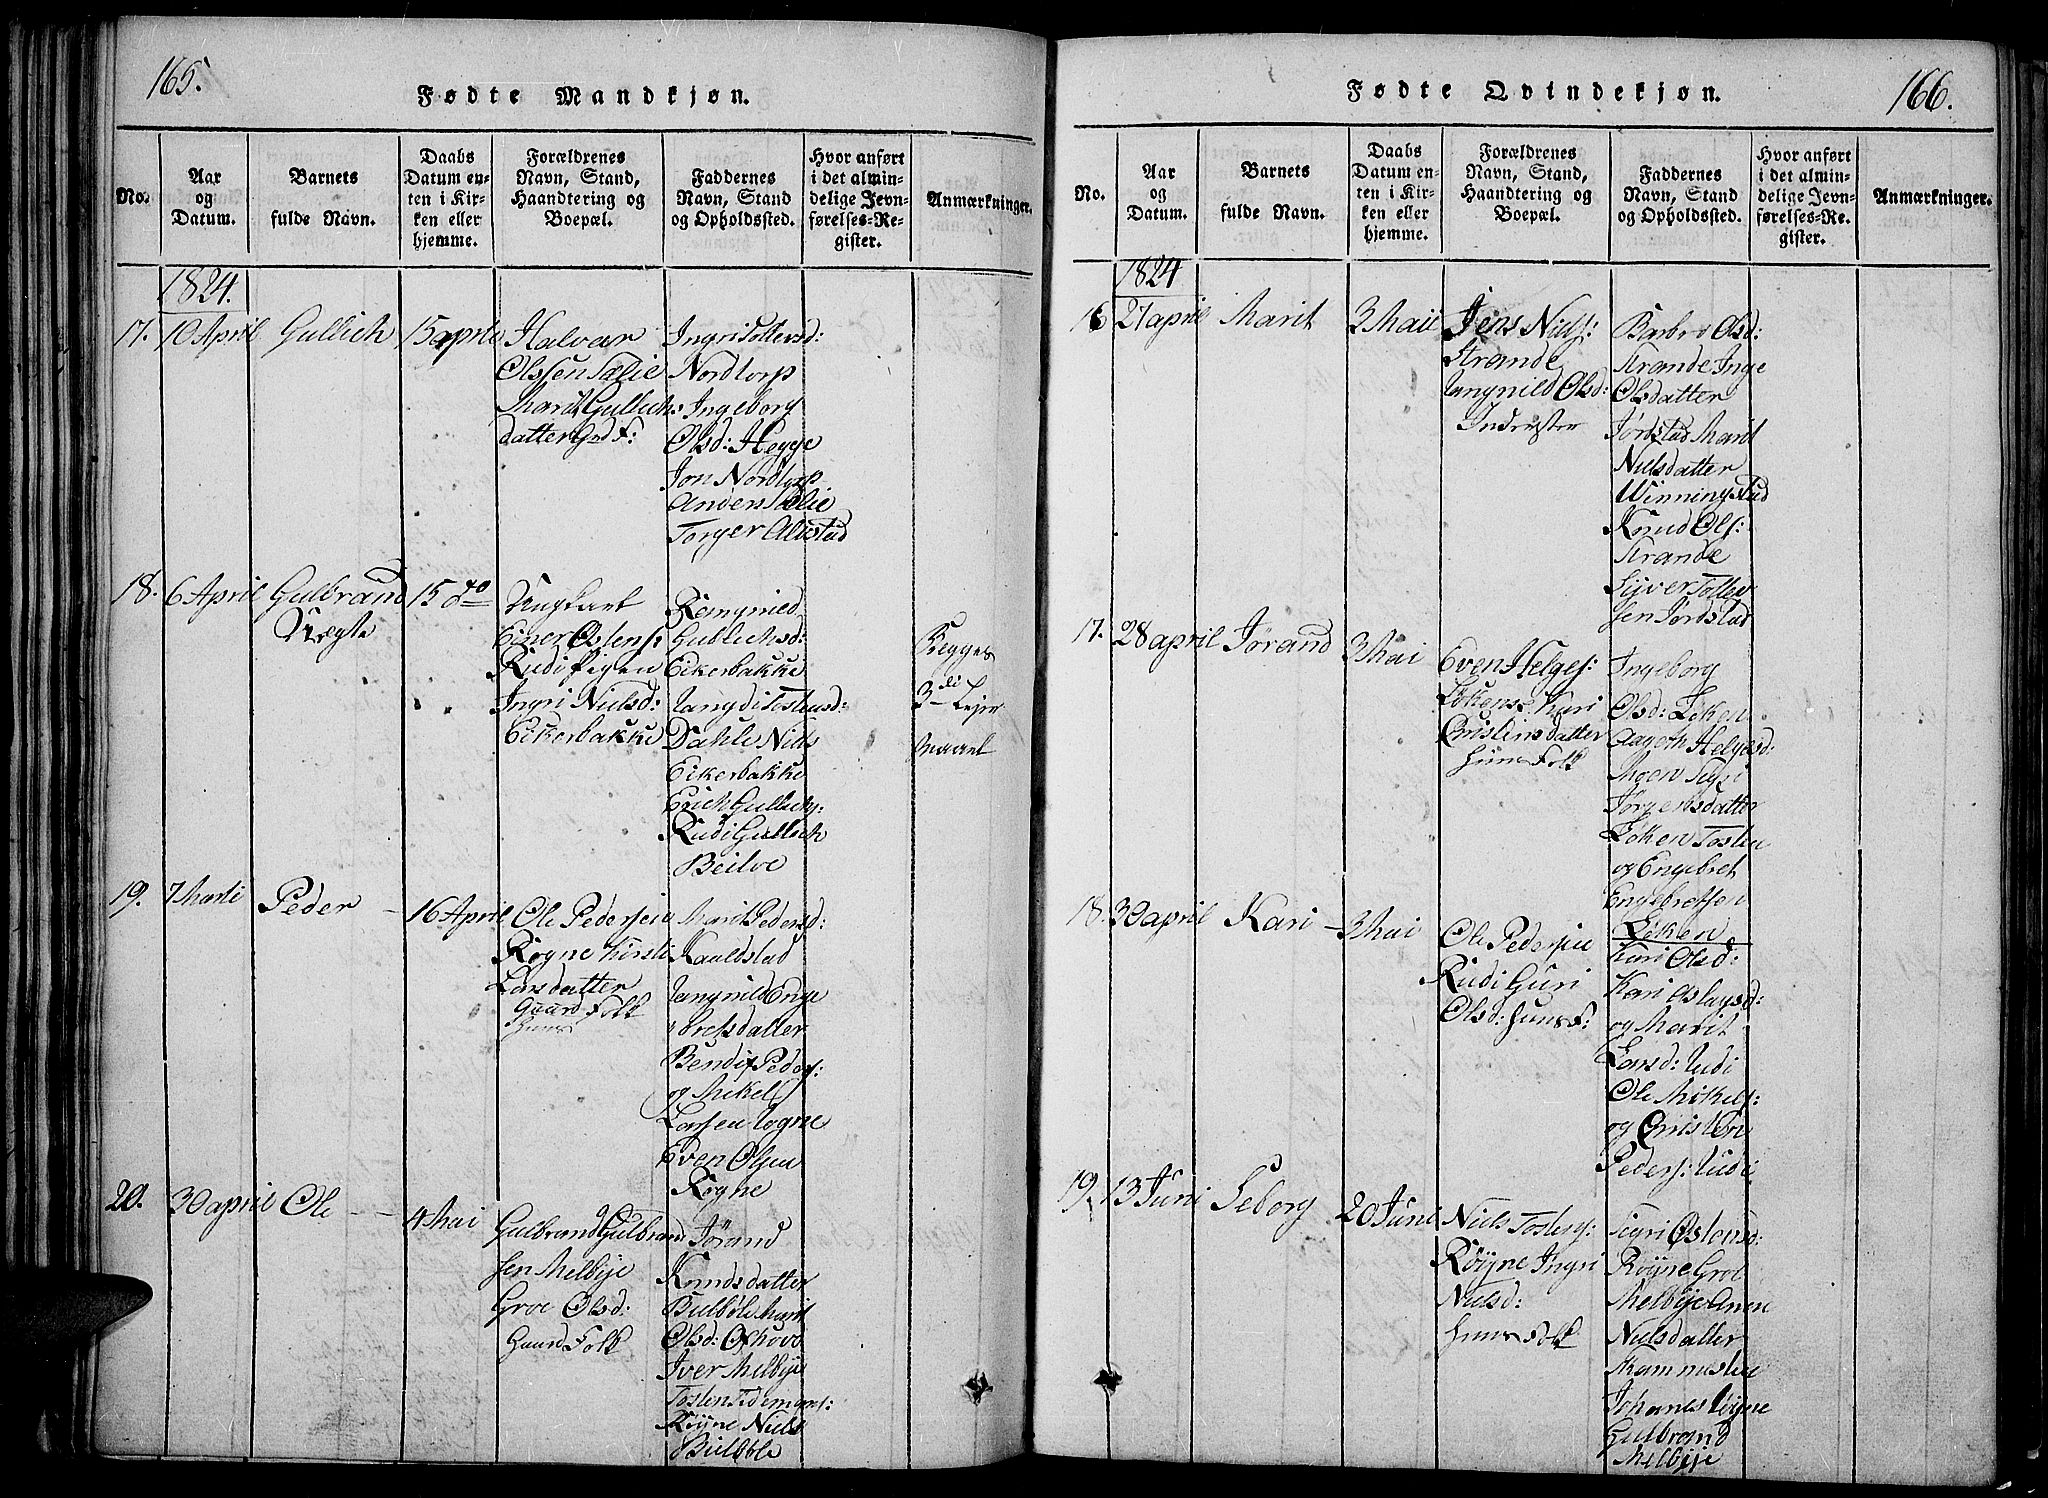 165.
Fødte Mandkjøn.
No.
Aar
og
Datum.
Barnets
fulde Navn.
Daabs
Datum en-
ten i Kir-
ken eller
hjemme.
Forældrenes
Navn, Stand,
Haandtering og
Boepæl.
Faddernes
Navn, Stand
og Opholdssted.
Hvor anført
i det almin-
delige Jevn-
førelses-Re-
gister.
Anmærkninger.
1824.
17.
10 April
Gullich
15 april
Halvar
Olssen Sælie
Marit Gullichs
datter Grd F:
Ingri Tollefsd:
Nordtorp
Ingeborg
Olsd: Hegge
Jon Nordtorp
Anders Sælie
Torger Alvstad
18.
6 April
Gulbrand
Uægte
15 do
Ungkarl
Einer Ostens:
Rudi Pigen
Ingri Nielsd:
Eikerbakke
Rangnild
Gullichsd:
Eikerbakke
Rangdi Tostensd:
Dahle Niels
Eikerbakke
Erich Gullichs:
Rudi Gullich
Beilve
Begges
3die Lejer
maal
19.
7 Marti
Peder
16 April
Ole Pedersen
Rogne Kirsti
Larsdatter
Gaard Folk
Huus
Marit Pedersd:
Kauldstad
Rangnild Enge
bretsdatter
Bendix Peders:
og Mikel
Larsen Rogne
Even Olsen
Rogne
20.
30 april
Ole
4 Mai
Gulbrand Gulbrand
sen Melbije
Groe Olsd:
Gaard Folk
Jørand
Knudsdatter
Bulbøle Marit
Olsd: Ofhovd
Iver Melbije
Tosten Tidemans:
Røijne Niels
Bulbøle
166.
Fødte Qvindekjøn.
No.
Aar
og
Datum.
Barnets
fulde Navn.
Daabs
Datum en-
ten i Kir-
ken eller
hjemme.
Forældrenes
Navn, Stand,
Haandtering og
Boepæl.
Faddernes
Navn, Stand
og Opholdssted.
Hvor anført
i det almin-
delige Jevn-
førelses-Re-
gister.
Anmærkninger.
1824
16
27 april
Marit
3 Maii
Jens Niels:
Strande
Rangnild Olsd:
Inderster
Barbro Olsd:
Strande Inge
Olsdatter
Jørdstad Marit
Nielsdatter
Winningstad
Knud Ols:
Strande
Sijver Tollef
sen Jørdstad
17.
28 april
Jørand
3 Mai
Even Helges:
Løkens Kari
Cristinsdatter
Huus Folk
Ingeborg
Olsd: Løken
Aagoth Helgesd:
Moen Sigri
Jørgensdatter
Løken Tosten
og Engebret
Engebretsen
Løken
18.
30 april
Kari
3 Mai
Ole Pedersen
Rudi Guri
Olsd: Huus F:
Kari Olsd:
Kari Aslagsd:
og Marit
Larsd: Rudi
Ole Mikels:
og Cristen
Peders: Rudi
19.
13 Juni
Seborg
20 Juni
Niels Tostens:
Røijne Ingri
Nielsd:
Huus Folk
Sigri Ostensd:
Røijne Groe
Melbije Anen
Nielsdatter
Skammesten
Johanes Røijne
Gulbrand
Melbije